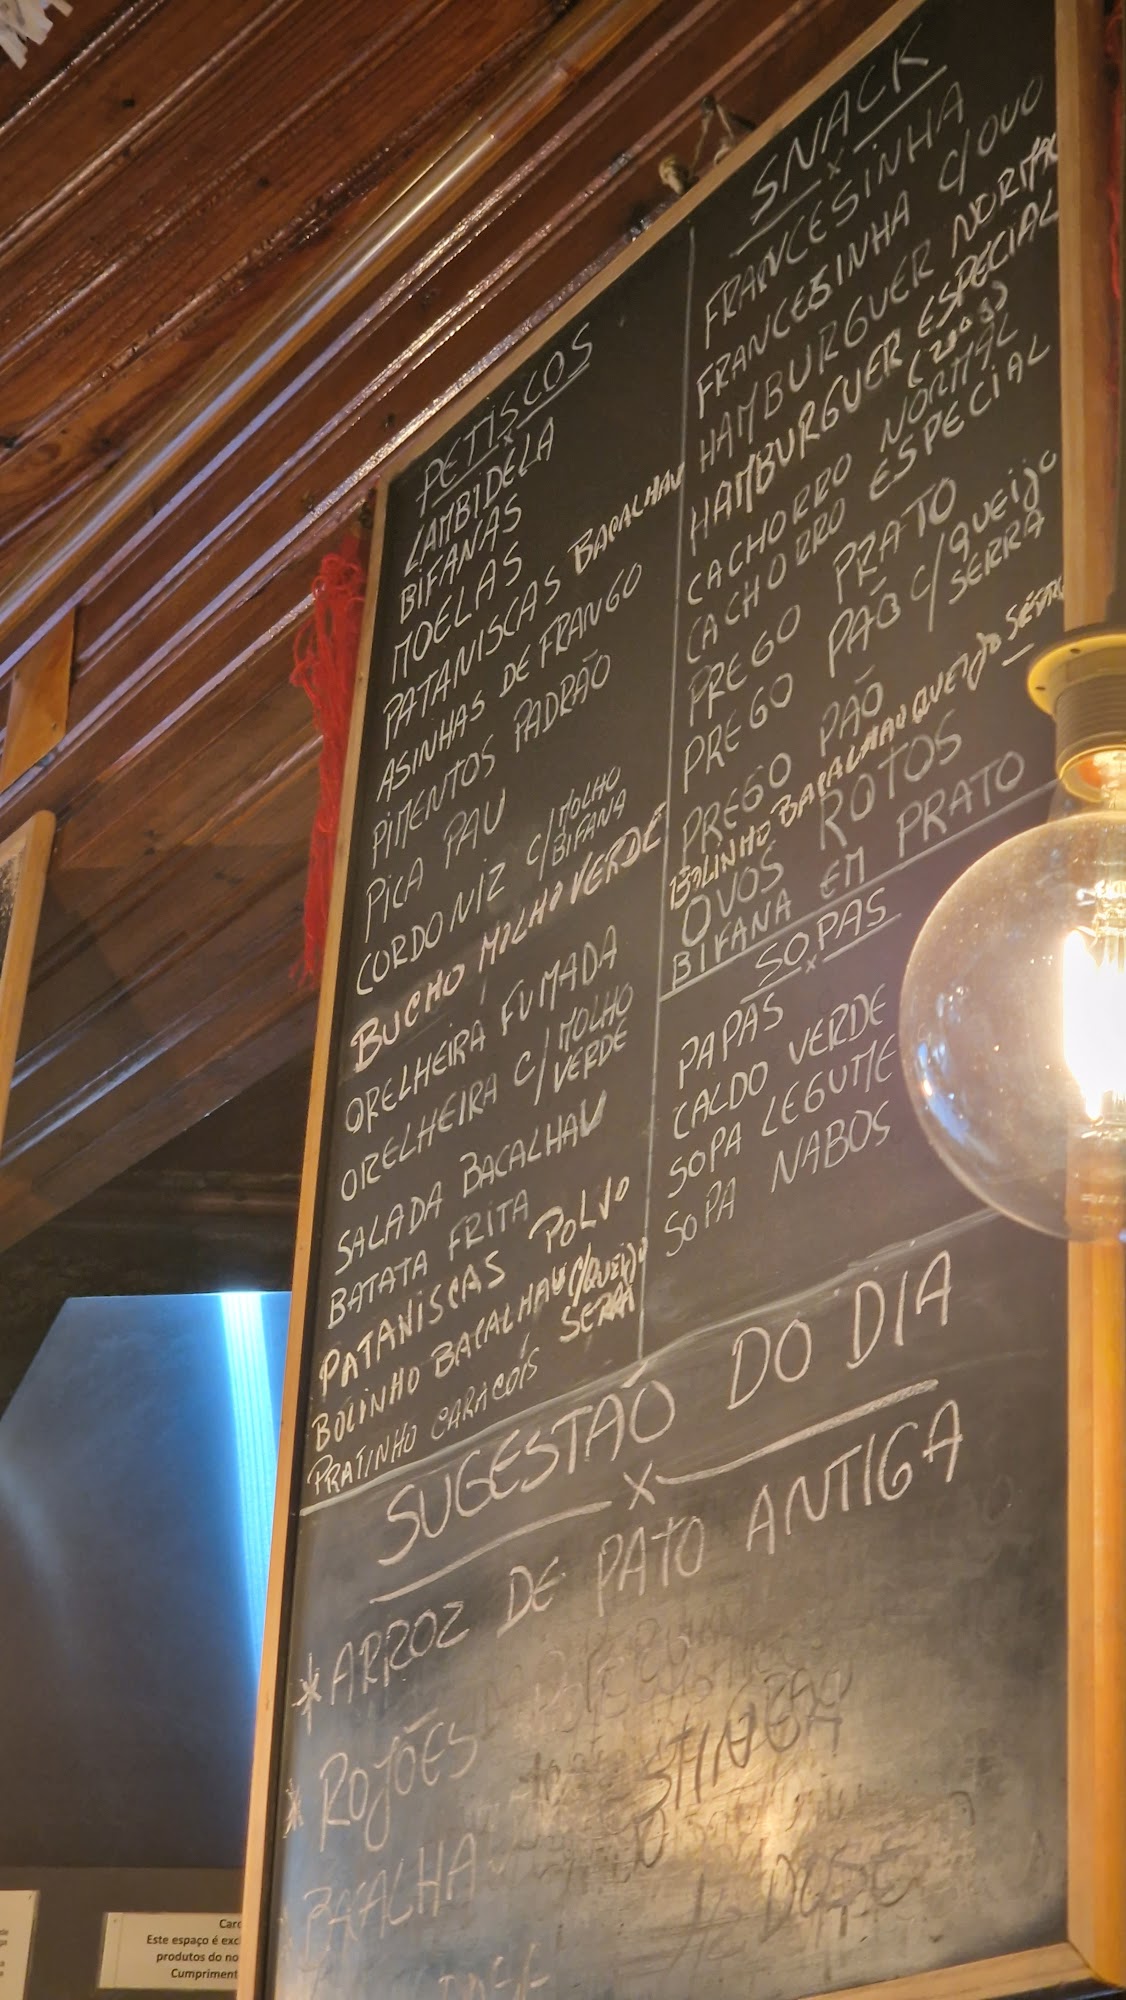 PETISCOS
LAMBIDELA
BIFANAS
MOELAS
PATANISCAS BACALHAU
ASINHAS DE FRANGO
PIMENTOS PADRÃO
PICA PAU
CORDONIZ C/MOLHO
BIFANA
BUCHO MILHO VERDE
ORELHEIRA FUMADA
ORELHEIRA C/MOLHO
VERDE
SALADA BACALHAU
BATATA FRITA
PATANISCAS POLVO
BOLINHO BACALHAU C/QUEIJO
SERRA
PRATINHO CARACÓIS
SNACK
FRANCESINHA
FRANCESINHA C/OVO
HAMBURGUER NORMAL
HAMBURGUER ESPECIAL
CACHORRO NORMAL
CACHORRO ESPECIAL
PREGO PRATO
PREGO PÃO C/QUEIJO
SERRA
PREGO PÃO
BOLINHO BACALHAU QUEIJO
OVOS ROTOS
BIFANA EM PRATO
SOPAS
PAPAS
CALDO VERDE
SOPA LEGUME
SOPA NABOS
SUGESTÃO DO DIA
* ARROZ DE PATO ANTIGA
* ROJÕES
BACALHA
1/2 DOSE
Este espaço é exc
produtos do no
Cumpriment